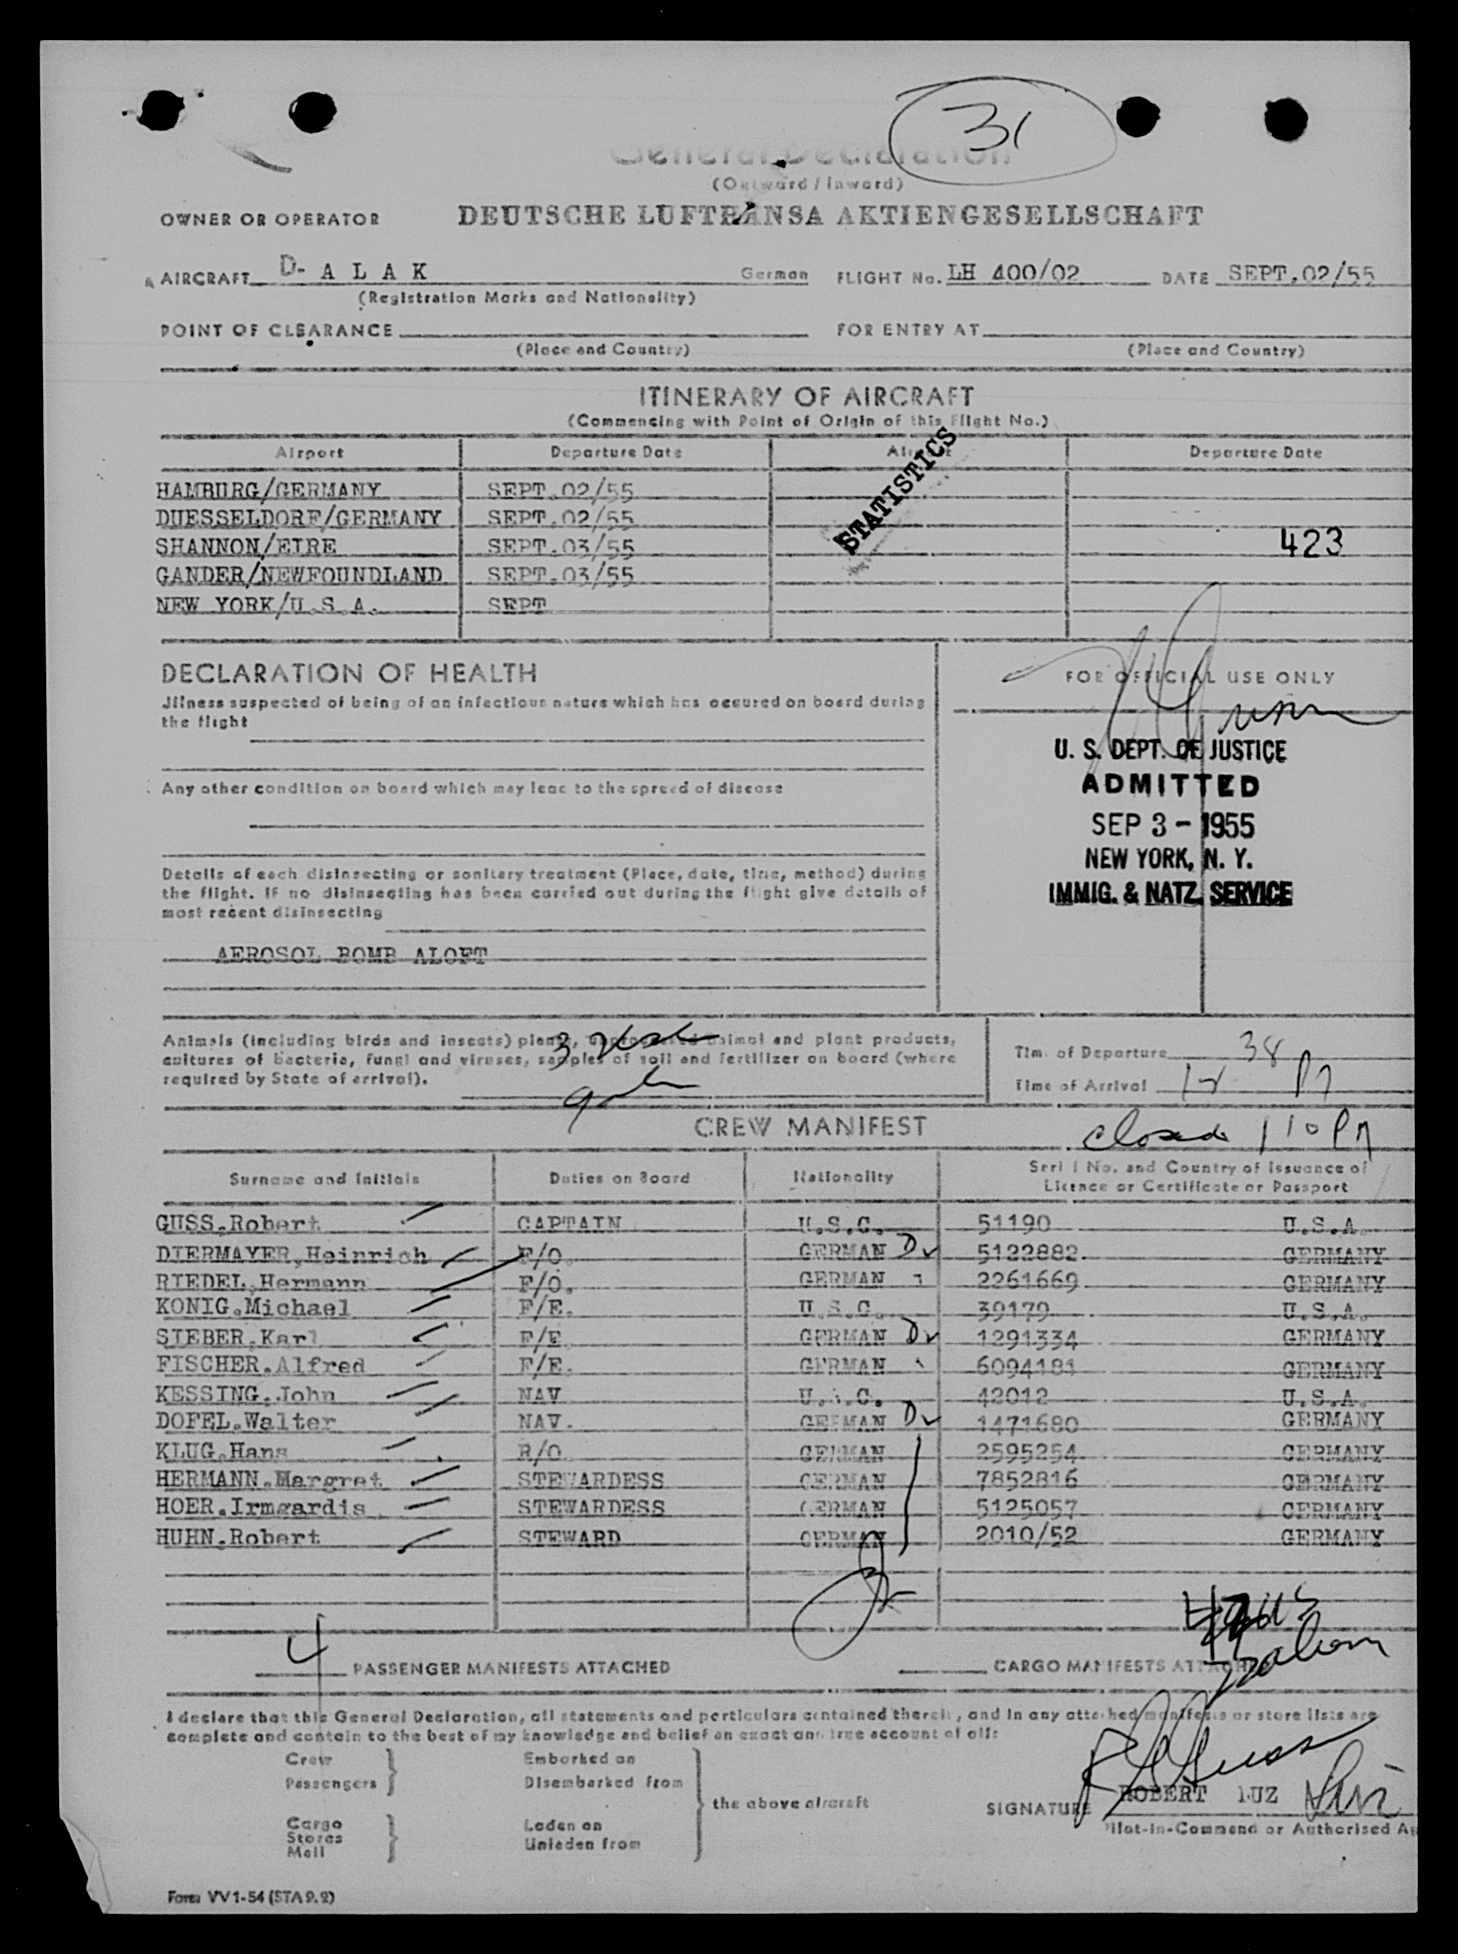 31
General Declaration
(Outward / Inward)
OWNER OR OPERATOR DEUTSCHE LUFTHANSA AKTIENGESELLSCHAFT
AIRCRAFT D- A L A K German FLIGHT No. LH 400/02 DATE SEPT.02/55
(Registration Marks and Nationality)
POINT OF CLEARANCE FOR ENTRY AT
(Place and Country) (Place and Country)
ITINERARY OF AIRCRAFT
(Commencing with Point of Origin of this Flight No.)
Airport Departure Date Airport Departure Date
STATISTICS
HAMBURG/GERMANY SEPT.02/55
DUESSELDORF/GERMANY SEPT.02/55
SHANNON/EIRE SEPT.03/55 423
GANDER/NEWFOUNDLAND SEPT.03/55
NEW YORK/U.S.A. SEPT
DECLARATION OF HEALTH FOR OFFICIAL USE ONLY
Jllness suspected of being of an infectious nature which has occured on board during
the flight
U. S. DEPT. OF JUSTICE
ADMITTED
SEP 3 - 1955
NEW YORK, N. Y.
IMMIG. & NATZ. SERVICE
Any other condition on board which may leac to the spreed of disease
Details of each disinsecting or sanitary treatment (Place, date, time, method) during
the flight. If no disinsecting has been carried out during the flight give details of
most recent disinsecting
AEROSOL BOMB ALOFT
Animals (including birds and insects) plants, unprocessed animal and plant products,
cultures of bacteria, fungi and viruses, samples of soil and fertilizer on board (where
required by State of arrival).
3
Time of Departure
Time of Arrival 12 38 PM
CREW MANIFEST closed 110 PM
Surname and Initials Duties on Board Nationality Serial No. and Country of Issuance of
Licence or Certificate or Passport
GUSS,Robert CAPTAIN U.S.C. 51190 U.S.A.
DIERMAYER,Heinrich F/O. GERMAN 5122882 GERMANY
RIEDEL,Hermann F/O. GERMAN 2261669 GERMANY
KONIG.Michael F/E. U.S.C. 39179 U.S.A.
SIEBER,Karl F/E GERMAN 1291334 GERMANY
FISCHER.Alfred F/E. GERMAN 6094181 GERMANY
KESSING.John NAV U.S.C. 42012 U.S.A.
DOFEL.Walter NAV. GERMAN 1471680 GERMANY
KLUG.Hans R/O GERMAN 2595254 GERMANY
HERMANN.Margret STEWARDESS GERMAN 7852816 GERMANY
HOER.Irmgardis STEWARDESS GERMAN 5125057 GERMANY
HUHN.Robert STEWARD GERMAN 2010/52 GERMANY
4 PASSENGER MANIFESTS ATTACHED CARGO MANIFESTS ATTACHED
I declare that this General Declaration, all statements and particulars contained therein, and in any attached manifests or store lists are
complete and contain to the best of my knowledge and belief an exact and true account of all:
Crew
Passengers
Embarked on
Disembarked from
the above aircraft
Cargo
Stores
Mail
Loaden on
Unleden from
SIGNATURE ROBERT LUZ
Pilot-in-Command or Authorised
Form VV 1-54 (STA 9.2)